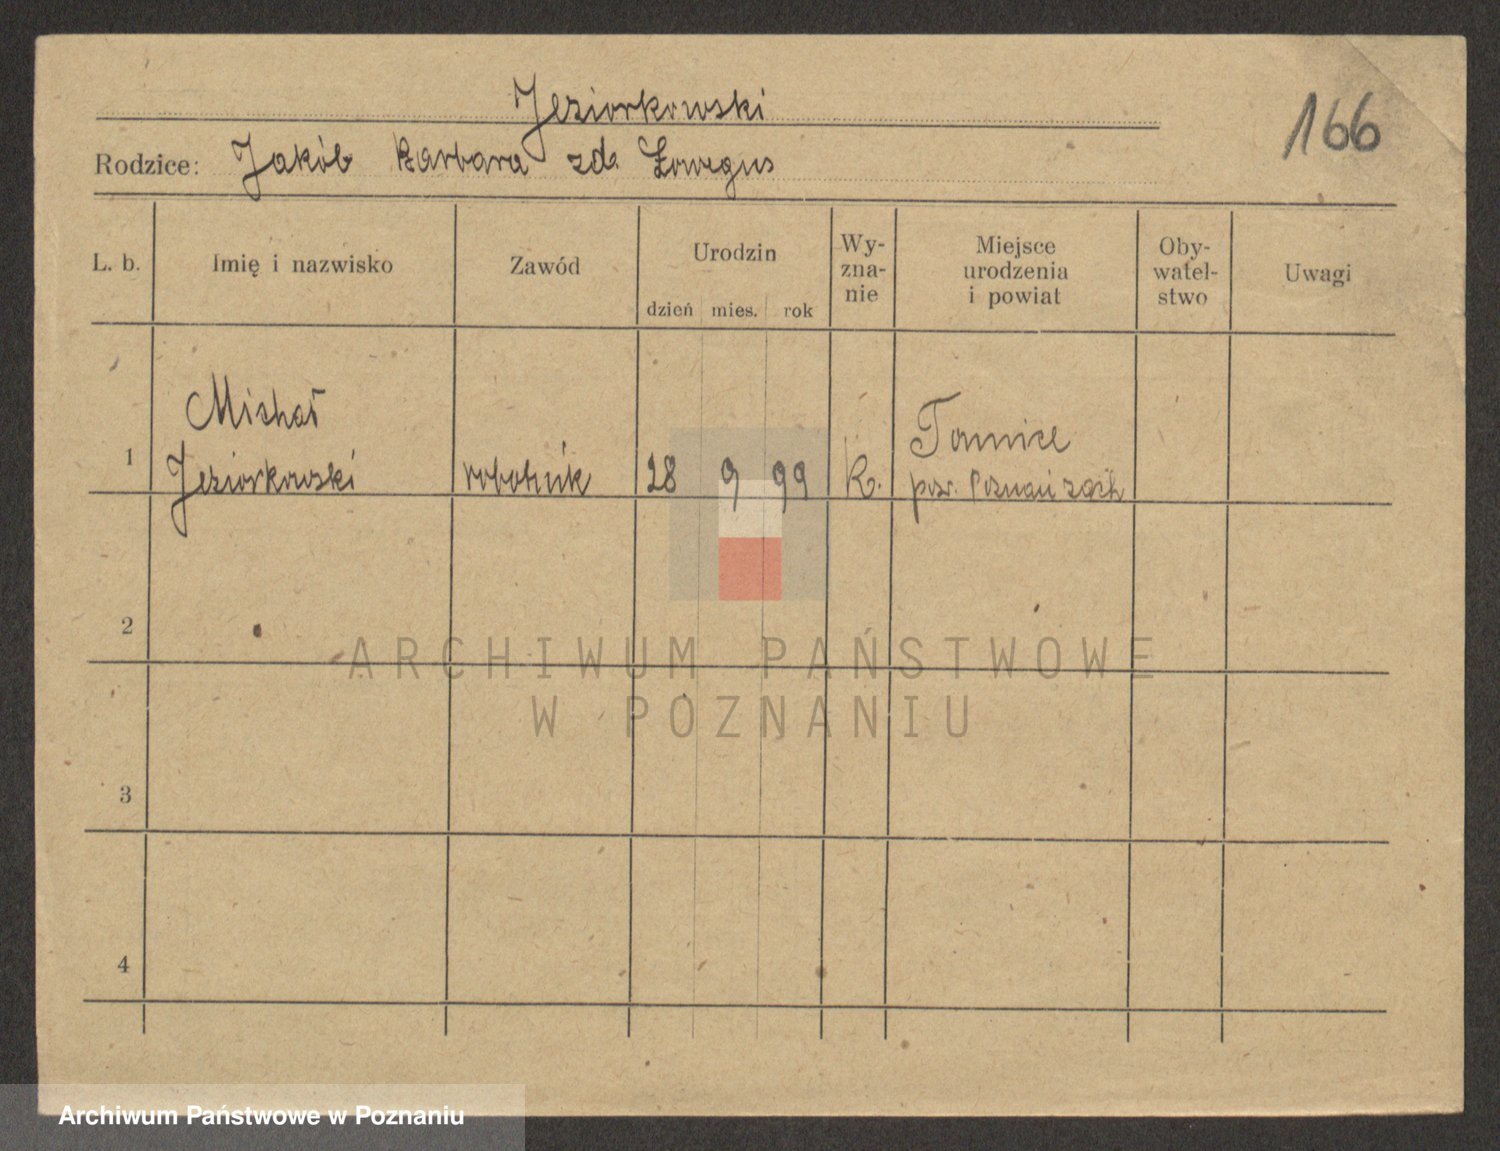 Jeziorkowski
166
Rodzice: Jakób Barbara zd.
L. b. Imię i nazwisko Zawód Urodzin dzień mies. rok Wy-zna-nie Miejsce urodzenia i powiat Oby-watel-stwo Uwagi
Michał
1 Jeziorkowski robotnik 28 9 99 R. Tomice
pow. Poznań zach
2
ARCHIWUM PAŃSTWOWE
W POZNANIU
3
4
Archiwum Państwowe w Poznaniu